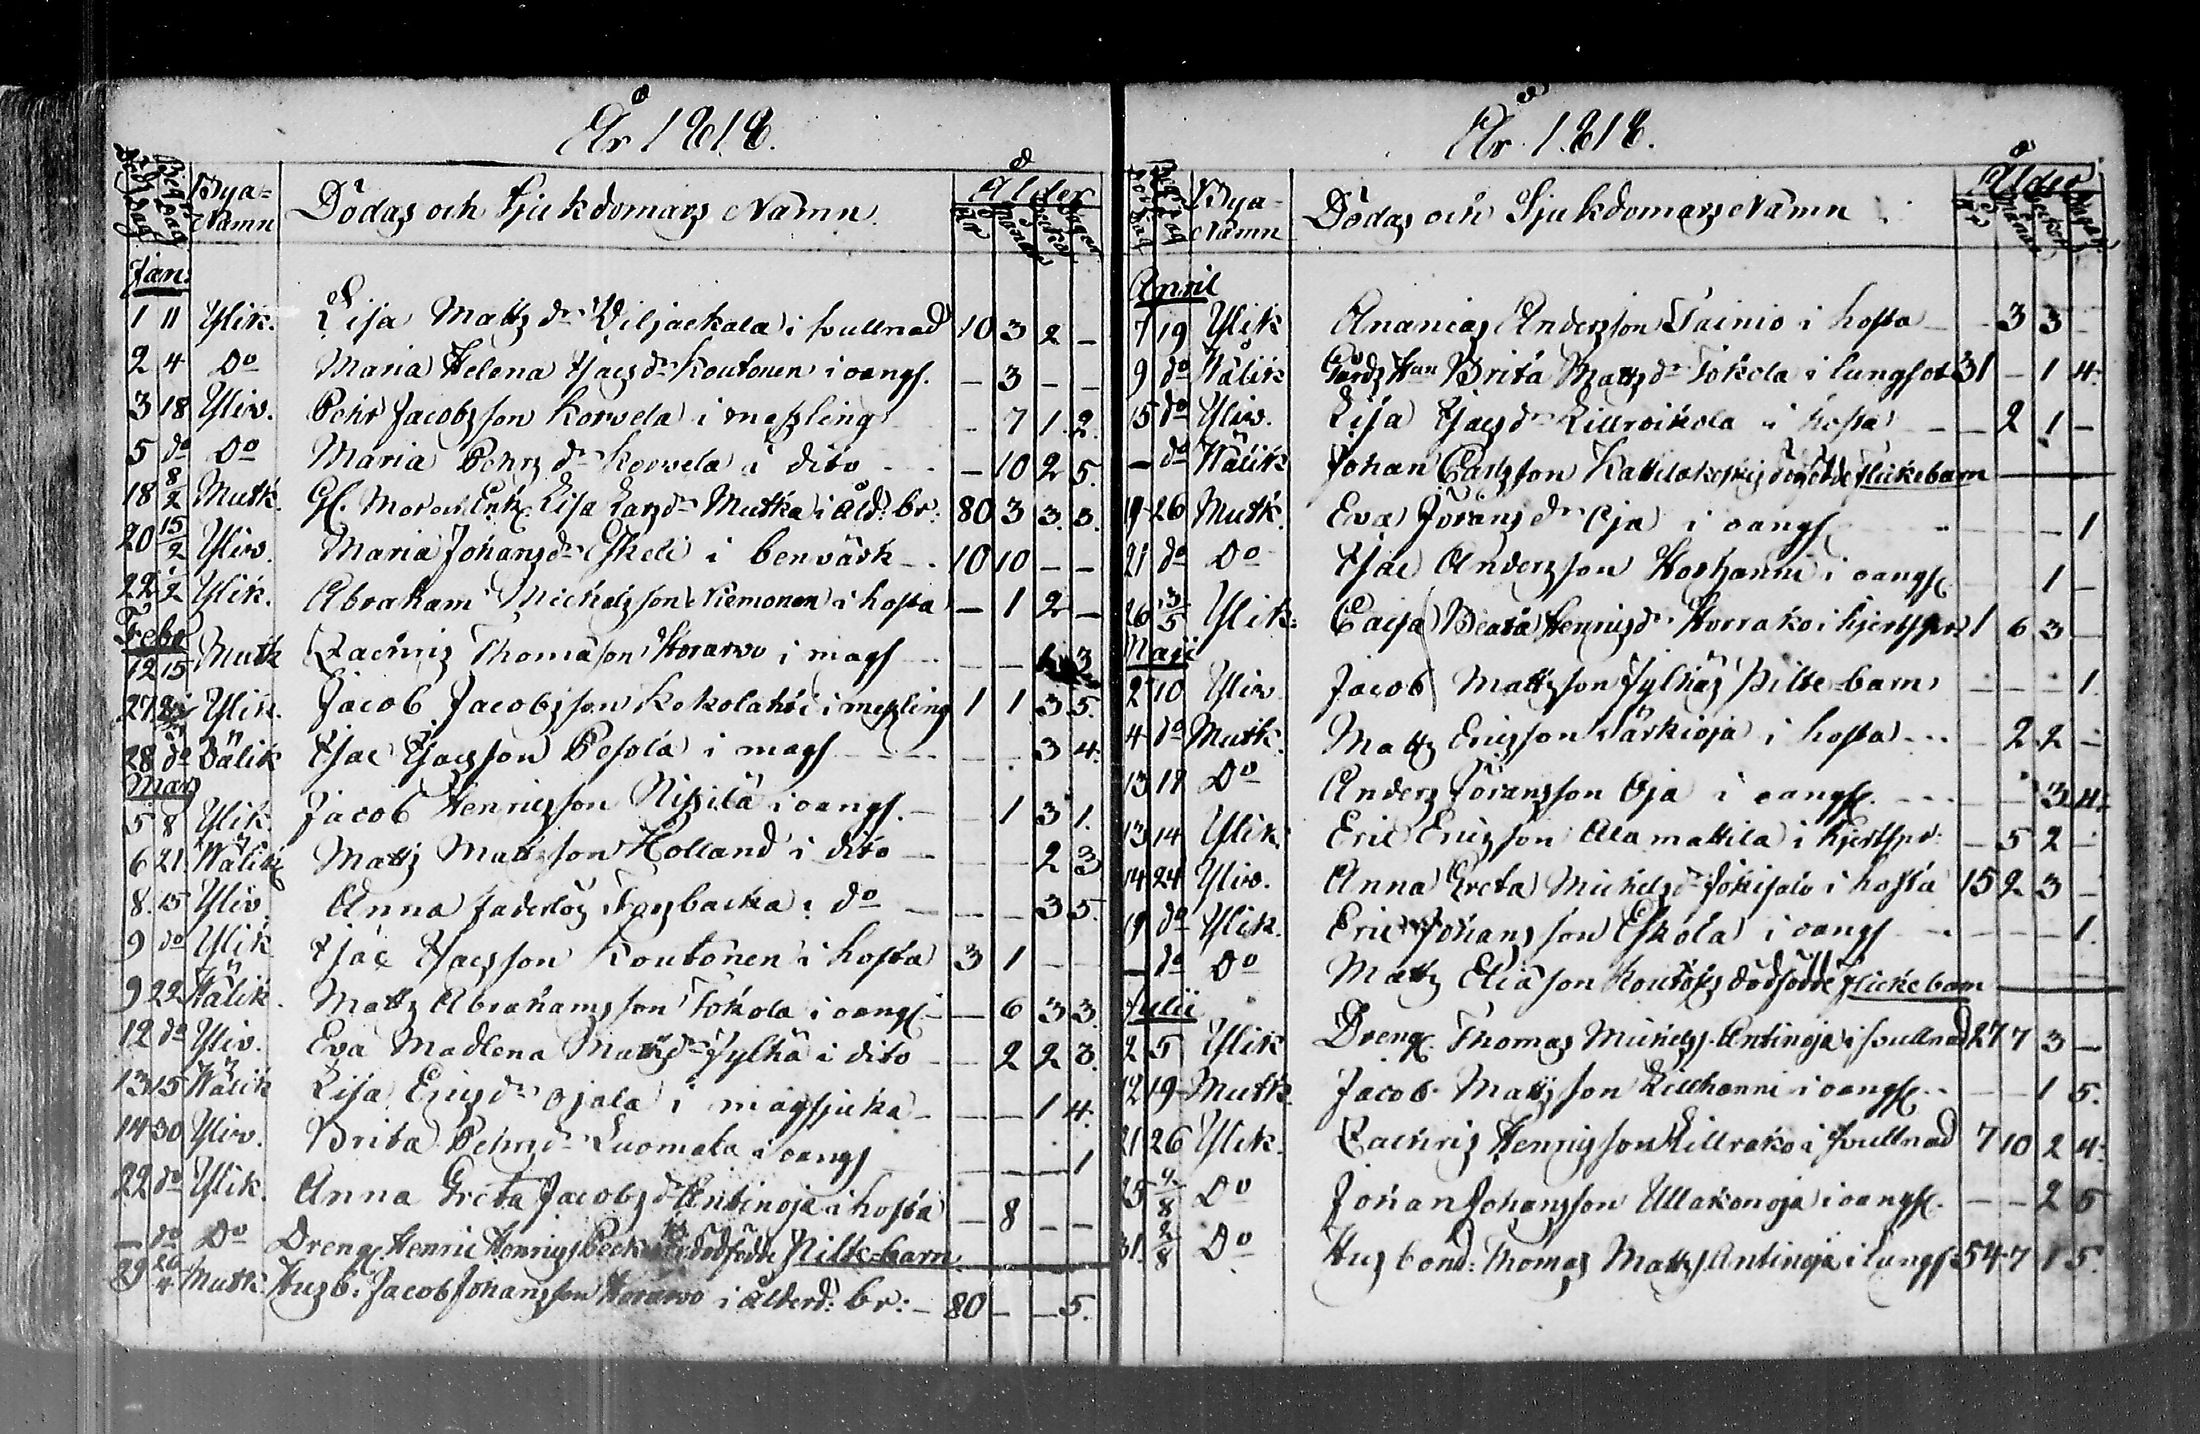 År 1818.
Död dag Begr. dag Bya-Namn Dödas och Sjukdomars Namn Ålder År Månad Veckor Dagar
Jan:
1 11 Ylik. Lisa Matts dr Viljackala i svullnad 10 3 2 -
2 4 Do Maria Helena Isacs dr Koutonen i oangf. - 3 - -
3 18 Yliv. Pehr Jacobsson Korvela i messling - 7 1. 2.
5 do Do Maria Pehrs dr Korvela i dito - 10 2 5.
18 8/2 Mutk. Gl. Mor Enk. Lisa Lars dr Mutka i åld: br: 80 3 3. 3.
20 15/2 Yliv. Maria Johans dr Eskeli i benvärk - 10 10 - -
22 1/2 Ylik. Abraham Michelsson Niemonen i hosta - 1 2 -
Febr
12 15 Mutk Zachris Thomasson Horarvo i mags - - 3
27 Ylik. Jacob Jacobsson Kokolahti i messling 1 1 3 5.
28 do Välik Isac Isacsson Pesola i mags - - - 3 4.
Mars
5 8 Ylik. Jacob Henricsson Nissilä i oangf. - 1 3 1.
6 21 Wälik Matts Mattsson Holland i dito - - 2 3
8. 15 Yliv. Anna Forsbacka i do - - - 3 5.
9 do Ylik Isac Isacsson Koutonen i hosta 3 1 - -
9 22 Wälik. Matts Abrahamsson Tokola i oangf. - 6 3 3.
12 do Yliv. Eva Madlena Matts dr Jylhä i dito - 2 2 3.
13 15 Wälik Lisa Erics dr Ojala i magsjuka - - - 1 4.
14 30 Yliv. Brita Pehrs dr Luomala i oangf - - - 1
22 do Ylik. Anna Greta Jacobs dr Antinoja i hosta - 8 - -
- do Do Dreng. Henric Henrics dödfödde Piltebarn.
29 26/4 Mutk. Husb. Jacob Johansson Horarvo i ålderd: br: - 80 - - 5.
År 1818.
Död dag Begr. dag Bya-Namn Dödas och Sjukdomars Namn Ålder År Månad Veckor Dagar
April
7 19 Ylik Ananias Andersson Tainio i hosta - - 3 3 -
9 do Wälik Gårds Hun Brita Matts dr Tokola i lungsot 31 - 1 4.
15 do Yliv. Lisa Isacs dr Lillroikola i hosta - - 2 1 -
- do Wälik Johan Carlsson Kattilakoskis dödfödde flickebarn
19 26 Mutk. Eva Jörans dr Oja i oangf. - - - 1
21 do Do Isac Andersson Korhanni i oangf. 1 -
26 3/5 Ylik. Caisa Beata Henrics dr Horrako i hjertspr. 1 6 3 -
Maji
2 10 Yliv Jacob Mattsson Jylhäs Pilte-barn - - - 1.
4 do Mutk. Matts Ericsson Särkioja i hosta - - - 2 2 -
13 17 Do Anders Jöransson Oja i oangf. - - - 3 4.
13 14 Ylik. Eric Ericsson Alamattila i hjertspr. - 5 2 -
14 24 Yliv. Anna Greta Michels dr Jokisalo i hosta 15 2 3 -
19 do Ylik. Eric Johansson Eskola i oangf - - - - 1.
- do Do Matts Eliasson dödfödde flickebarn
Julii
2 5 Ylik Dreng. Thomas Michelss. Antinoja i svullnad 27 7 3 -
12 19 Mutk Jacob Mattsson Lillhanni i oangf. - - 1 5.
21 26 Ylik. Zachris Henricsson Lillrako i svullnad 7 10 2 4.
25 9/8 Do Johan Johansson Ullakonoja i oangf. - - 2 5
31. 2/8 Do Husbond: Thomas Matts. Antinoja i lungs. 54 7 1 5.